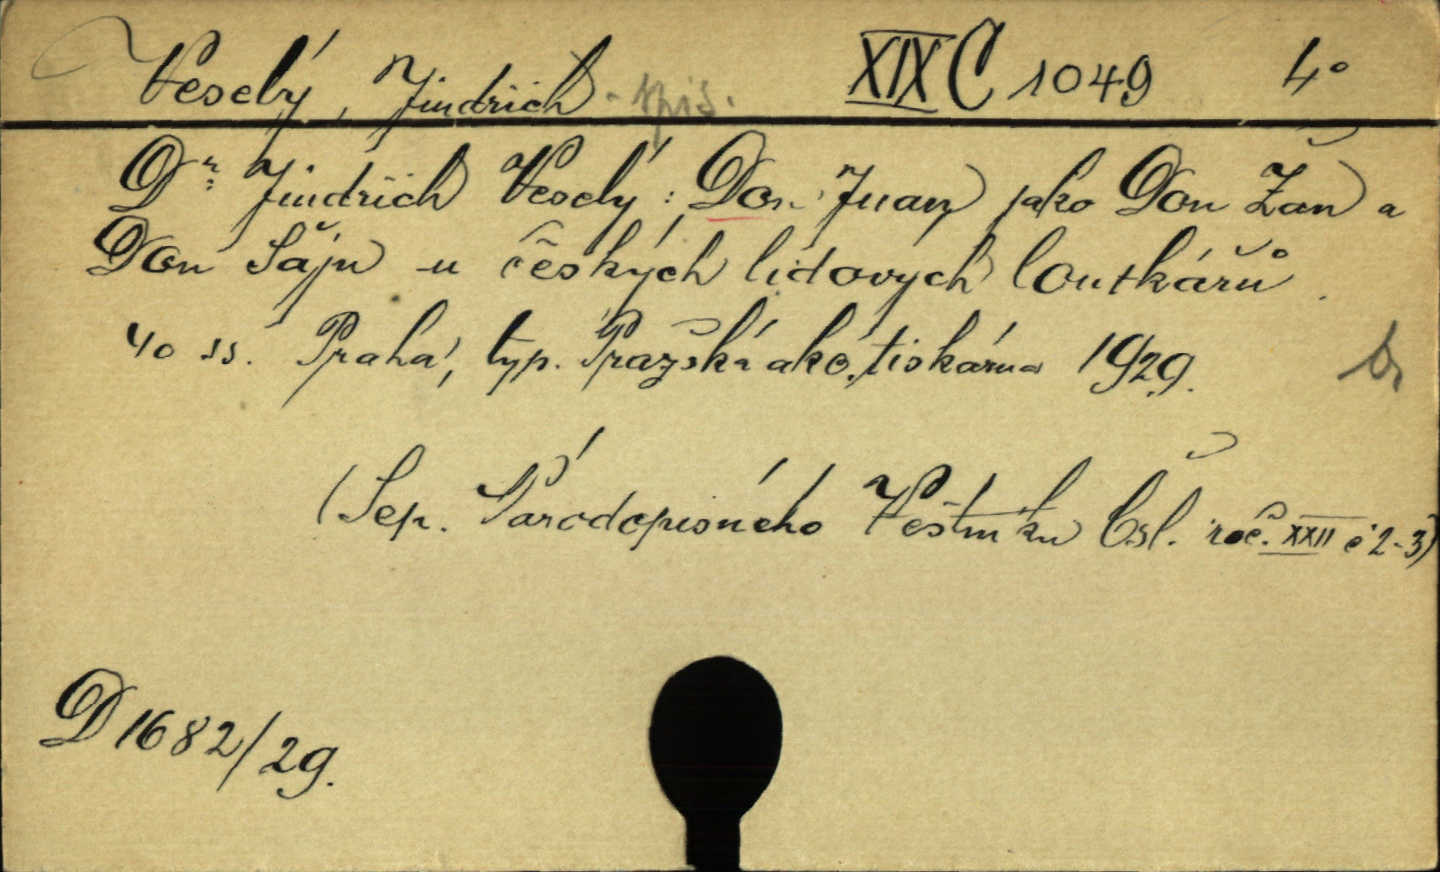 Veselý, Jindřich - spis. XIX C 1049 4°
Dr. Jindřich Veselý: Don Juan jako Don Žan a
Don Šajn u českých lidových loutkářů.
40 ss. Praha, typ. Pražská akc. tiskárna 1929.
(Sep. Národopisného Věstníku Čsl. roč. XXII č 2-3)
D 1682/29.